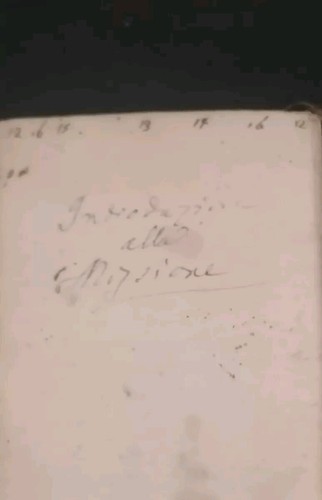 12 6 15. 13 14 16 12
Introduzione
alla
Missione